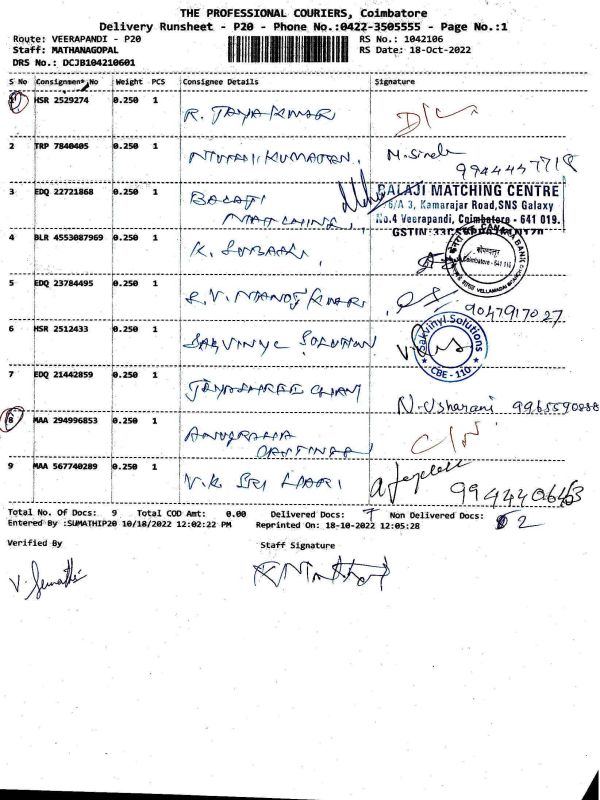 THE PROFESSIONAL COURIERS, Coimbatore
Delivery Runsheet - P20 - Phone No.:0422-3505555 - Page No.:1
Route: VEERAPANDI - P20 RS No.: 1042106
Staff: MATHANAGOPAL RS Date: 18-Oct-2022
DRS No.: DCJB104210601
S No Consignment No Weight PCS Consignee Details Signature
1 HSR 2529274 0.250 1 R. JAYA KUMAR D/C
2 TRP 7840405 0.250 1 9944447718
3 EDQ 22721868 0.250 1 BALAJI MATCHING
BALAJI MATCHING CENTRE
Kamarajar Road, SNS Galaxy
No.4 Veerapandi, Coimbatore - 641 019.
GSTIN:
4 BLR 4553087969 0.250 1 K. SUBA
CANARA BANK
5 EDQ 23784495 0.250 1 R.V. MANOJ KUMAR 9047917027
6 HSR 2512433 0.250 1 SAKVINYL SOLUTION
Sakvinyl Solutions
CBE - 110
7 EDQ 21442859 0.250 1 JAYASHREE N. Usharani
8 MAA 294996853 0.250 1 ANURADHA C/N
9 MAA 567740289 0.250 1 V.K. SRI HARI
Total No. Of Docs: 9 Total COD Amt: 0.00 Delivered Docs: 7 Non Delivered Docs: 2
Entered By :SUMATHIP20 10/18/2022 12:02:22 PM Reprinted On: 18-10-2022 12:05:28
Verified By Staff Signature